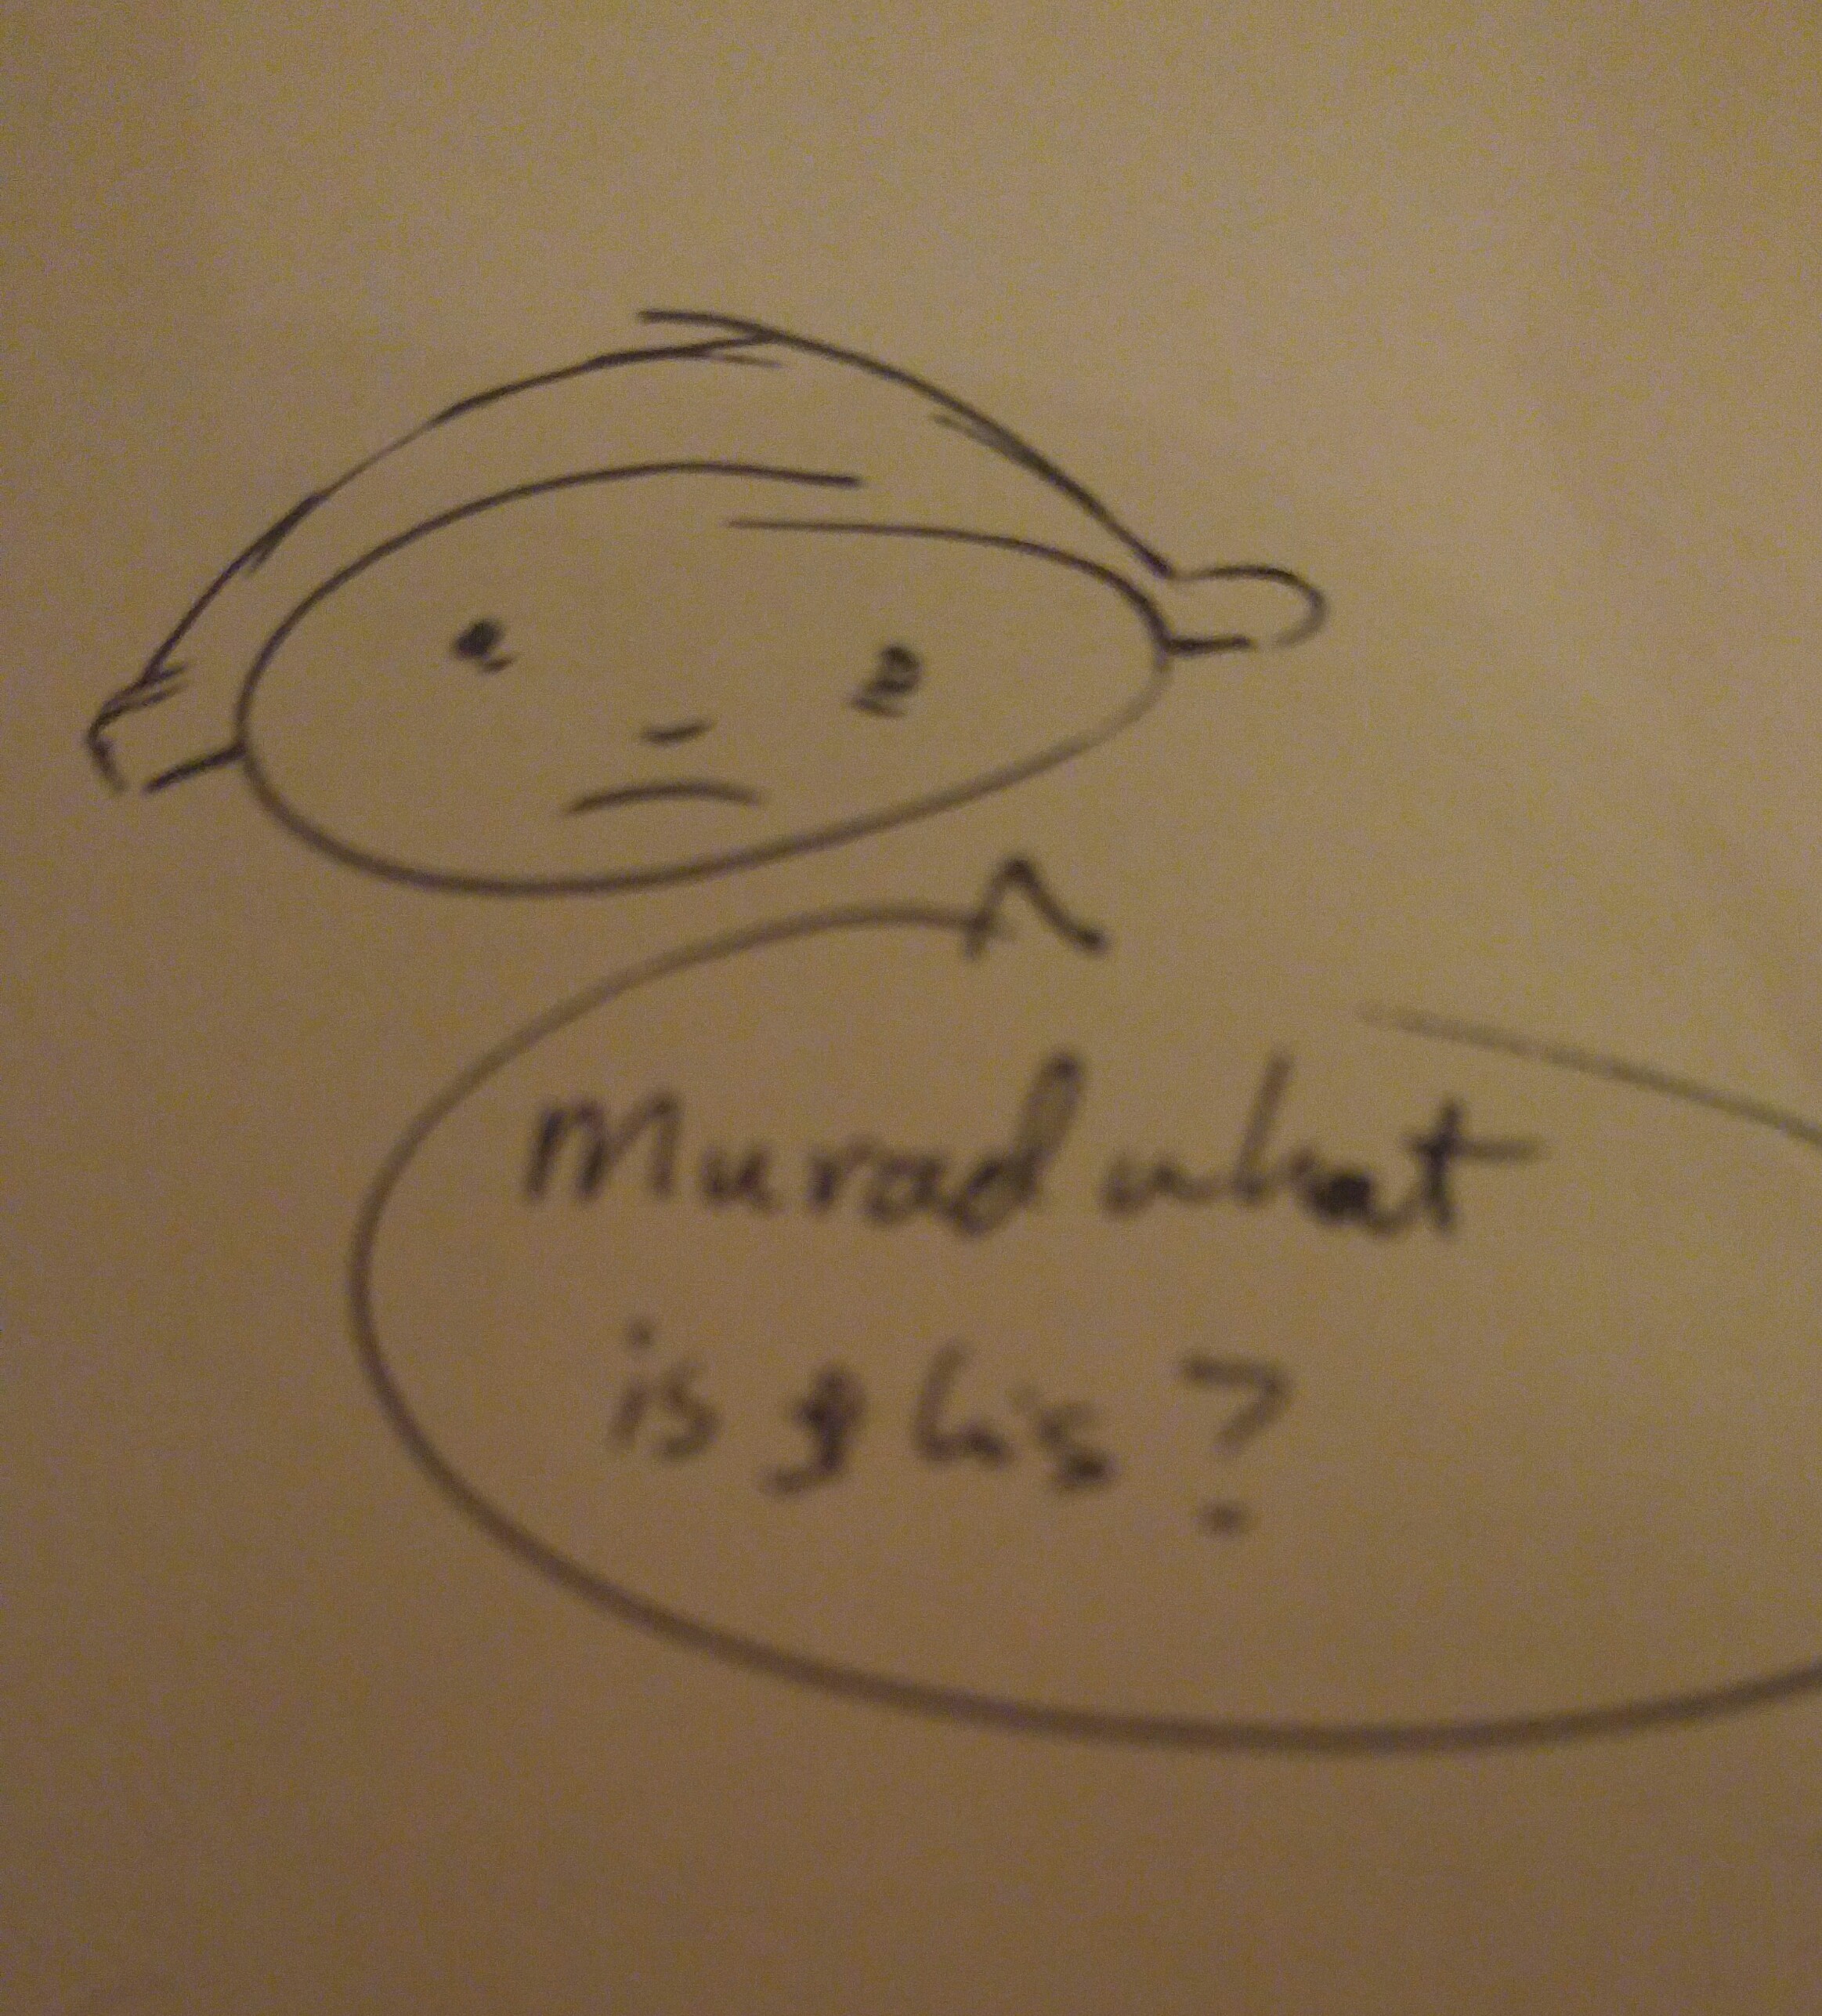 Murad what
is this?